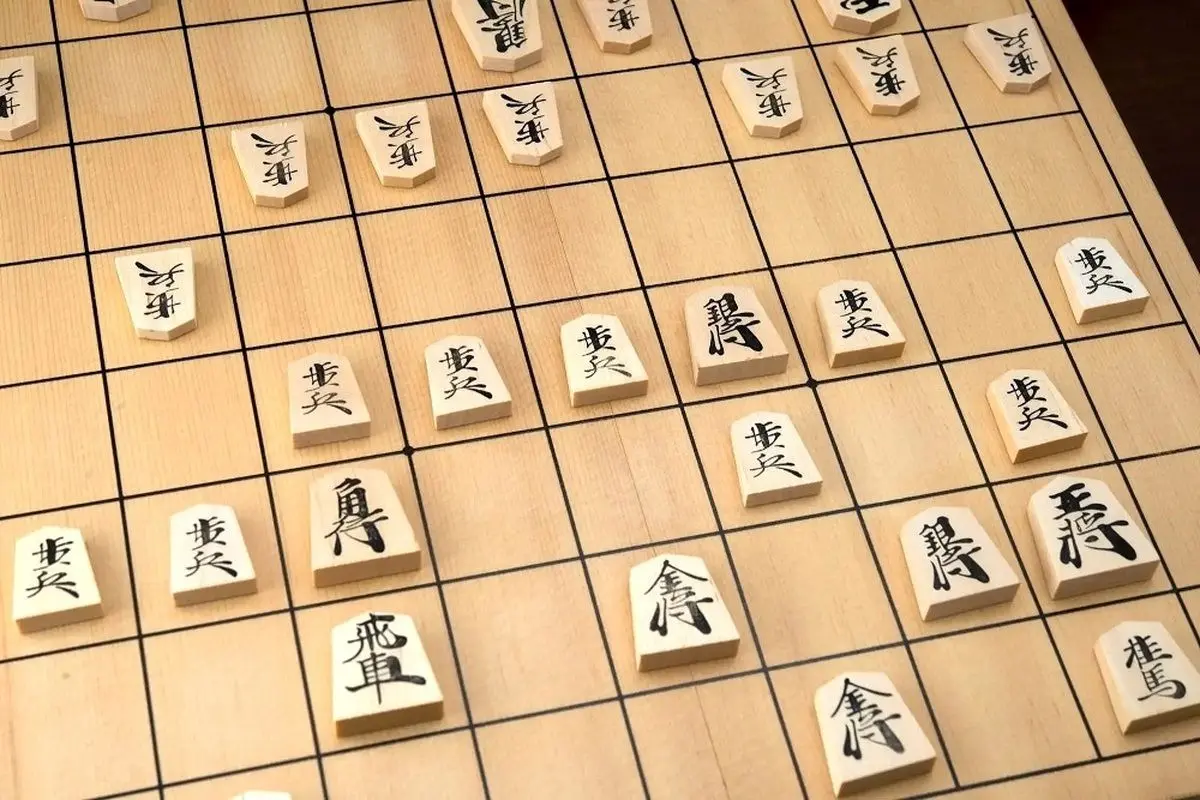 銀将
歩兵
歩兵
歩兵
歩兵
歩兵
歩兵
歩兵
歩兵
歩兵
歩兵
歩兵
銀将
歩兵
歩兵
歩兵
歩兵
歩兵
歩兵
王将
角行
銀将
歩兵
歩兵
金将
飛車
桂馬
金将